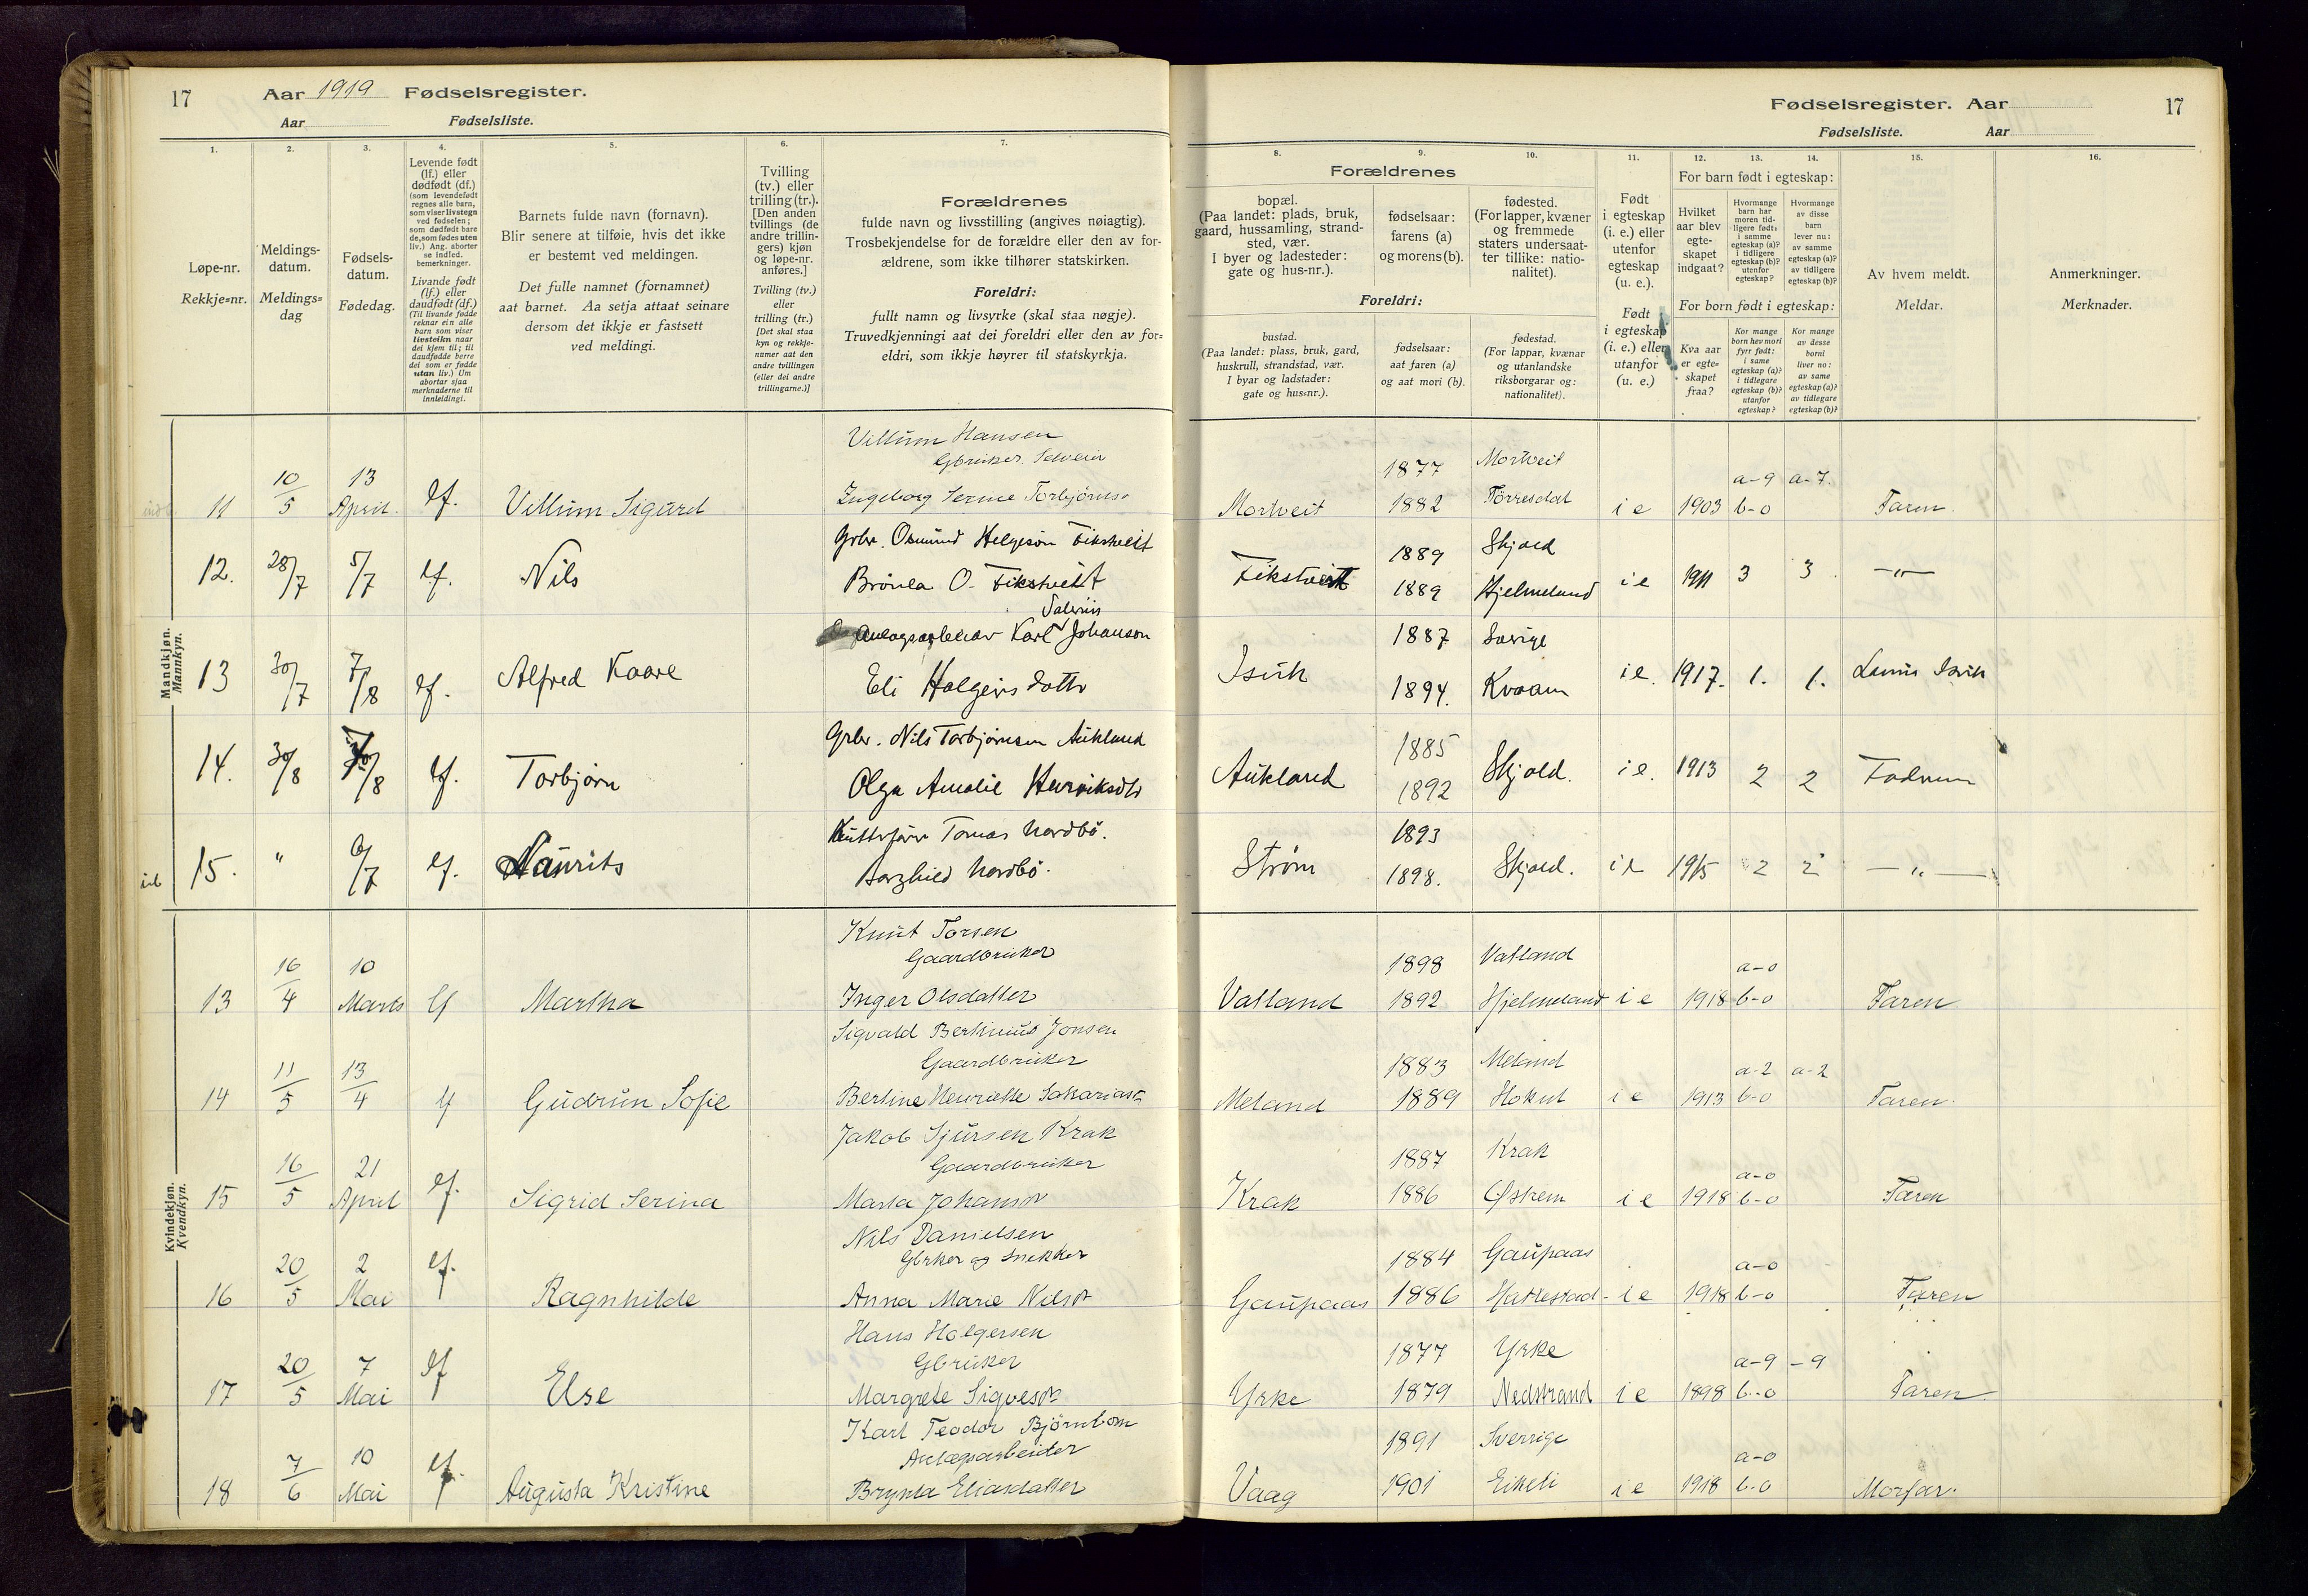 17 Aar 1919 Fødselsregister.
Aar Fødselsliste.
Fødselsregister. Aar 17
Fødselsliste. Aar
1. 2. 3. 4. 5. 6. 7. 8. 9. 10. 11. 12. 13. 14. 15. 16.
Løpe-nr.
Rekkje=nr.
Meldings-
datum.
Meldings=
dag
Fødsels-
datum.
Fødedag.
Levende født
(lf.) eller
dødfødt (df.)
(som levendefødt
regnes alle barn,
som viser livstegn
ved fødselen;
som dødfødt bare
de, som fødes uten
liv.) Ang. aborter
se indled.
bemerkninger.
Livande født
(lf.) eller
daudfødt (df.)
(Til livande fødde
reknar ein alle
born som viser
livsteikn naar
dei kjem til; til
daudfødde berre
dei som er fødde
utan liv.) Um
abortar sjaa
merknaderne til
innleidingi.
Barnets fulde navn (fornavn).
Blir senere at tilføie, hvis det ikke
er bestemt ved meldingen.
Det fulle namnet (fornamnet)
aat barnet. Aa setja attaat seinare
dersom det ikkje er fastsett
ved meldingi.
Tvilling
(tv.) eller
trilling (tr.).
[Den anden
tvillings (de
andre trillin-
gers) kjøn
og løpe-nr.
anføres.]
Tvilling (tv.)
eller
trilling (tr.)
[Det skal staa
kyn og rekkje-
numer aat den
andre tvillingen
(eller dei andre
trillingarne.)]
Forældrenes
fulde navn og livsstilling (angives nøiagtig).
Trosbekjendelse for de forældre eller den av for-
ældrene, som ikke tilhører statskirken.
Foreldri:
fullt namn og livsyrke (skal staa nøgje).
Truvedkjenningi aat dei foreldri eller den av for=
eldri, som ikkje høyrer til statskyrkja.
Forældrenes
bopæl.
(Paa landet: plads, bruk,
gaard, hussamling, strand-
sted, vær.
I byer og ladesteder:
gate og hus-nr.).
fødselsaar:
farens (a)
og morens (b).
fødested.
(For lapper, kvæner
og fremmede
staters undersaat-
ter tillike: natio-
nalitet).
Foreldri:
bustad.
(Paa landet: plass, bruk, gard,
huskrull, strandstad, vær.
I byar og ladstader:
gate og hus=nr.).
fødselsaar:
aat faren (a)
og aat mori (b).
fødestad.
(For lappar, kvænar
og utanlandske
riksborgarar og:
nationalitet).
Født
i egteskap
(i. e.) eller
utenfor
egteskap
(u. e.).
Født
i egteskap
(i. e.) eller
utanfor
(u. e.)
For barn født i egteskap:
Hvilket
aar blev
egte-
skapet
indgaat?
Hvormange
barn har
moren tid-
ligere født:
i samme
egteskap (a)?
i tidligere
egteskap (b)?
utenfor
egteskap?
Hvormange
av disse
barn
lever nu:
av samme
egteskap (a)?
av tidligere
egteskap (b)?
For born født i egteskap:
Kva aar
er egte=
skapet
fraa?
Kor mange
born hev mori
fyrr født:
i same
egteskap (a)?
i tidlegare
egteskap (b)?
utanfor
egteskap?
Kor mange
av desse
borni
liver no:
av same
egteskap (a)?
av tidlegare
egteskap (b)?
Av hvem meldt.
Meldar.
Anmerkninger.
Merknader.
Mandkjøn.
Mannkyn.
Villum Hansen
Gbruker
11 10/5 13 April. lf. Villum Sigurd Ingeborg Serine Torbjørns. Mortveit 1877 1882 Mortveit i e 1903 a-9 b-0 a-7. Faren
Grbr. Osmund Helgesøn
12. 28/7 5/7 lf. Nils 1889 1889 Skjold Hjelmeland i e 1911 3 3 —"—
Anlægsarbeider Karl Salerius Johanson
13 30/7 7/8 lf. Alfred Kaare Eli Holgeirsdottr 1887 1894. Sverige Kvaam i e. 1917. 1. 1.
Grbr. Nils Torbjørnsen Aukland
14. 30/8 lf. Torbjørn Olga Amalie Henriksdtr Aukland 1885 1892 Skjold. i e. 1913 2 2 Fadren
Tomas Nordbø.
15. " 6/7 lf. Laurits Nordbø. Strøm 1893 1898. Skjold. i e 1915 2 2 —"—
Kvindekjøn.
Kvendkyn.
Knut Torsen
Gaardbruker
13 16/4 10 Marts lf Martha Inger Olsdatter Vatland 1898 1892 Vatland Hjelmeland i e 1918 a-0 b-0 Faren
Sigvald Bertinius Jonsen
Gaardbruker
14 11/5 13/4 lf Gudrun Sofie Bertine Henriette Sakariasd. Meland 1883 1889 Meland i e 1913 a-2 b-0 a-2 Faren.
Jakob Sjursen Krak
Gaardbruker
15 16/5 21 April lf. Sigrid Serina Marta Johansd. Krak 1887 1886 Krak Østrem i e 1918 a-0 b-0 Faren
Nils Danielsen
Gbrker og Snekker
16 20/5 2 Mai lf. Ragnhilde Anna Marie Nilsd. Gaupaas 1884 1886 Gaupaas Hattestad i e 1918 a-0 b-0 Faren
Hans Holgersen
Gbruker
17 20/5 7 Mai lf Else Margrete Sigvesd. Yrke 1877 1879 Yrke Nedstrand i e 1898 a-9 b-0 -9 Faren
Karl Teodor Björnbom
Anlægsarbeider
18 7/6 10 Mai lf. Augusta Kristine Brynla Eliasdatter Vaag 1891 1901 Sverrige Eikeli i e 1918 a-0 b-0 Morfar.